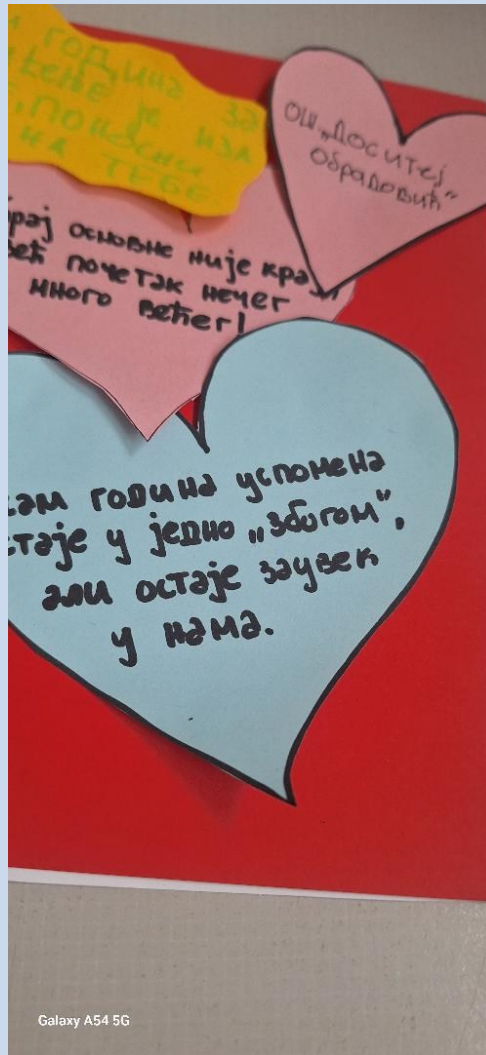 ГОДИНА ЗА
ЈЕ ИЗА
ПОНОСНИ
НА ТЕБЕ
ОШ „ДОСИТЕЈ
ОБРАДОВИЋ“
основне није крај
почетак нечег
много већег!
година успомена
стаје у једно „збогом“,
али остаје заувек
у нама.
Galaxy A54 5G